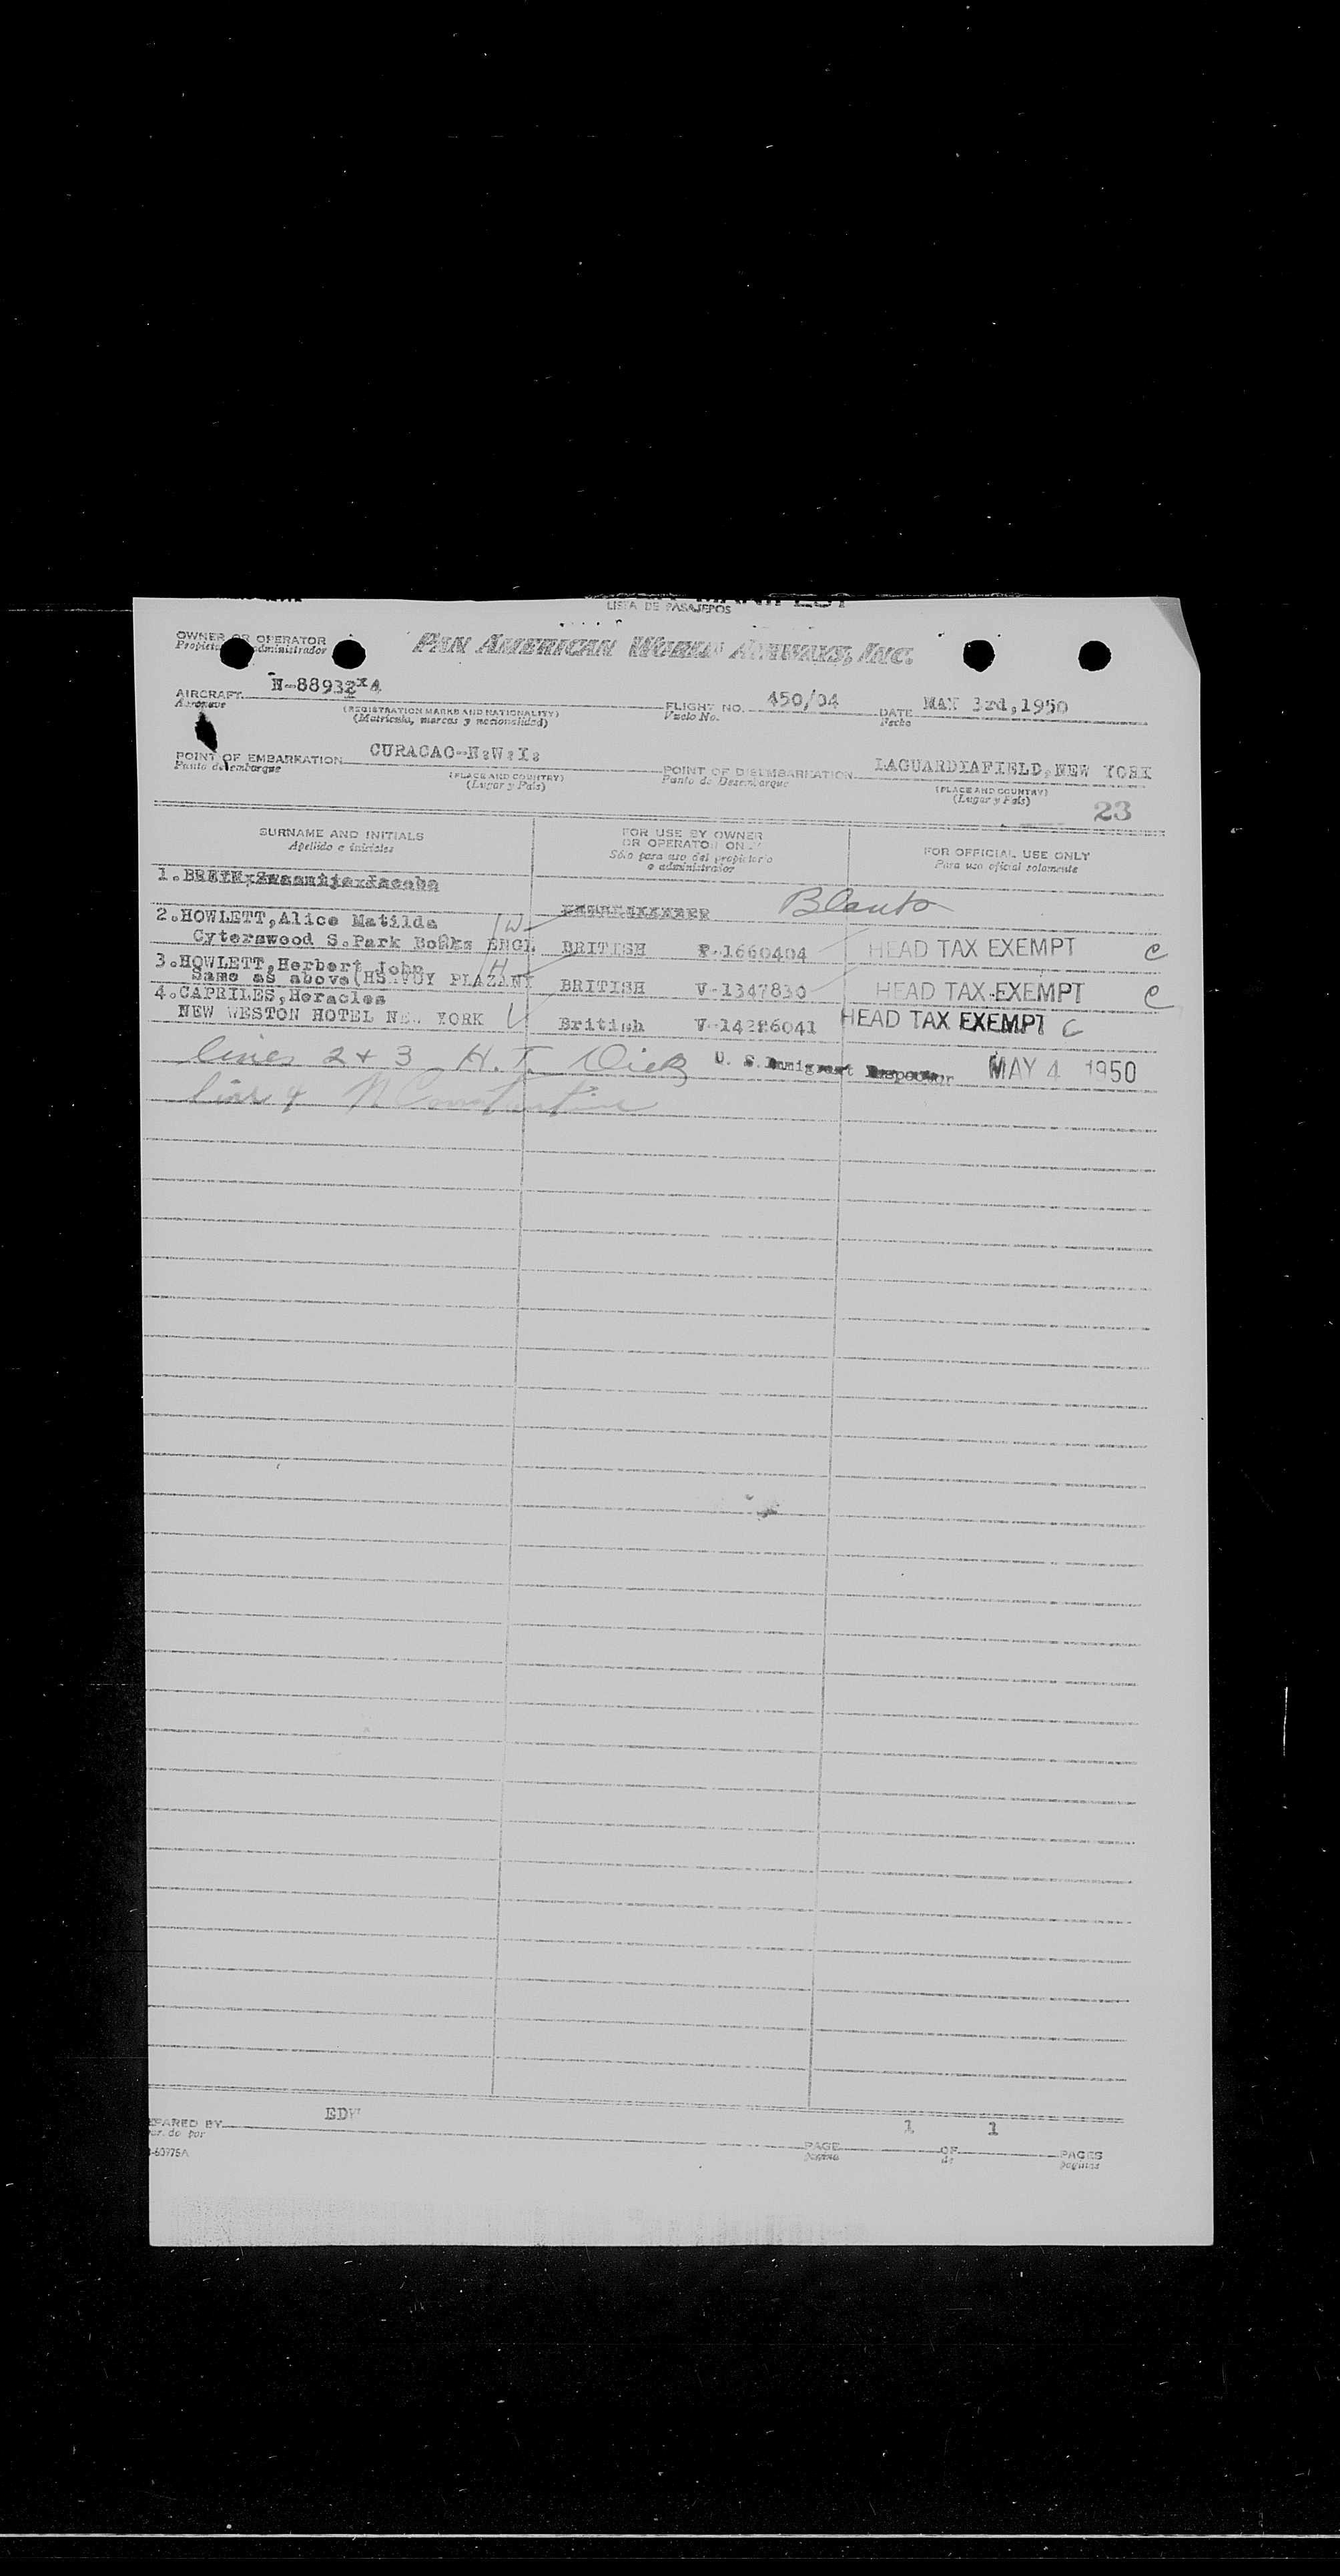 LISTA DE PASAJEROS
OWNER OR OPERATOR PAN AMERICAN WORLD AIRWAYS, INC.
AIRCRAFT N-88932x4 FLIGHT NO. 450/04 DATE MAY 3rd,1950
Aeronave (REGISTRATION MARKS AND NATIONALITY) Vuelo No. Fecha
(Matricula, marcas y nacionalidad)
POINT OF EMBARKATION CURACAO-N:W:I: POINT OF DISEMBARKATION LAGUARDIAFIELD,NEW YORK
Punto de embarque (PLACE AND COUNTRY) Punto de Desembarque (PLACE AND COUNTRY)
(Lugar y País) (Lugar y País)
23
SURNAME AND INITIALS FOR USE BY OWNER OR OPERATOR ONLY FOR OFFICIAL USE ONLY
Apellido e iniciales Sólo para uso del propietario o administrador Para uso oficial solamente
1.
2.HOWLETT,Alice Matilda W
S.Park ENGL BRITISH 1660404 HEAD TAX EXEMPT C
3.HOWLETT,Herbert John H
Same as above BRITISH V-1347830 HEAD TAX EXEMPT C
4.CAPRILES,Heracles
NEW WESTON HOTEL NEW YORK British HEAD TAX EXEMPT C
lines 2 + 3 H. T. Dick U. S. Immigrant Inspector MAY 4 1950
line 4
EPARED BY EDW
PAGE 1 OF 1 PAGES
página de páginas
-60775A